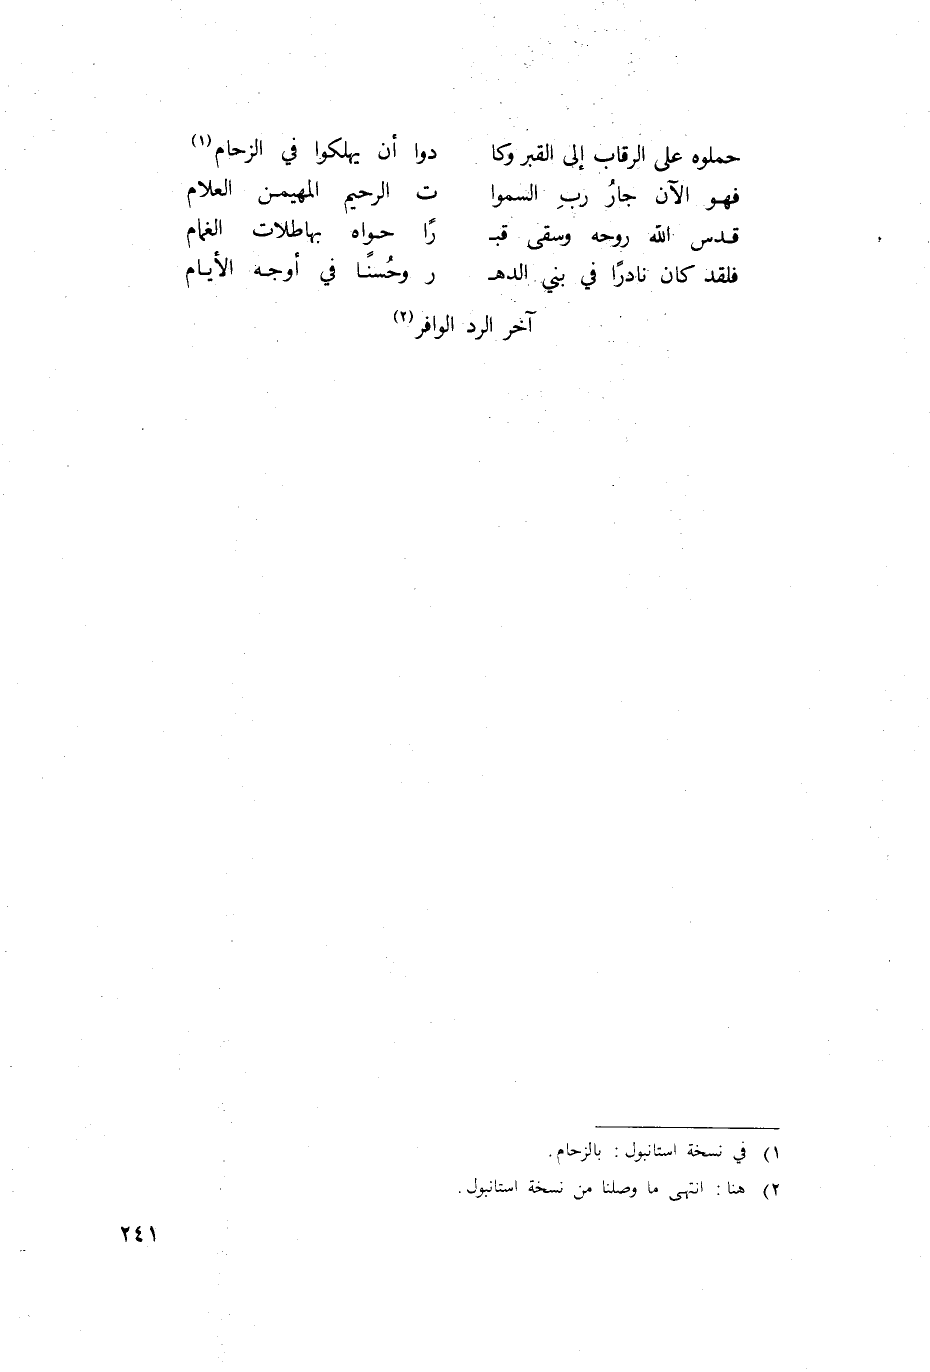 حملوه على الرقاب إلى القبر وكا دوا أن يهلكوا في الزحام(١)
فهـو الآن جارُ ربِ السموا ت الرحيم المهيمـن العلام
قـدس الله روحه وسقى قبـ رًا حـواه بهاطلات الغمام
فلقد كان نادرًا في بني الدهـ ر وحُسنًـا في أوجـه الأيـام
آخر الرد الوافر(٢)
١) في نسخة استانبول : بالزحام.
٢) هنا : انتهى ما وصلنا من نسخة استانبول.
٢٤١